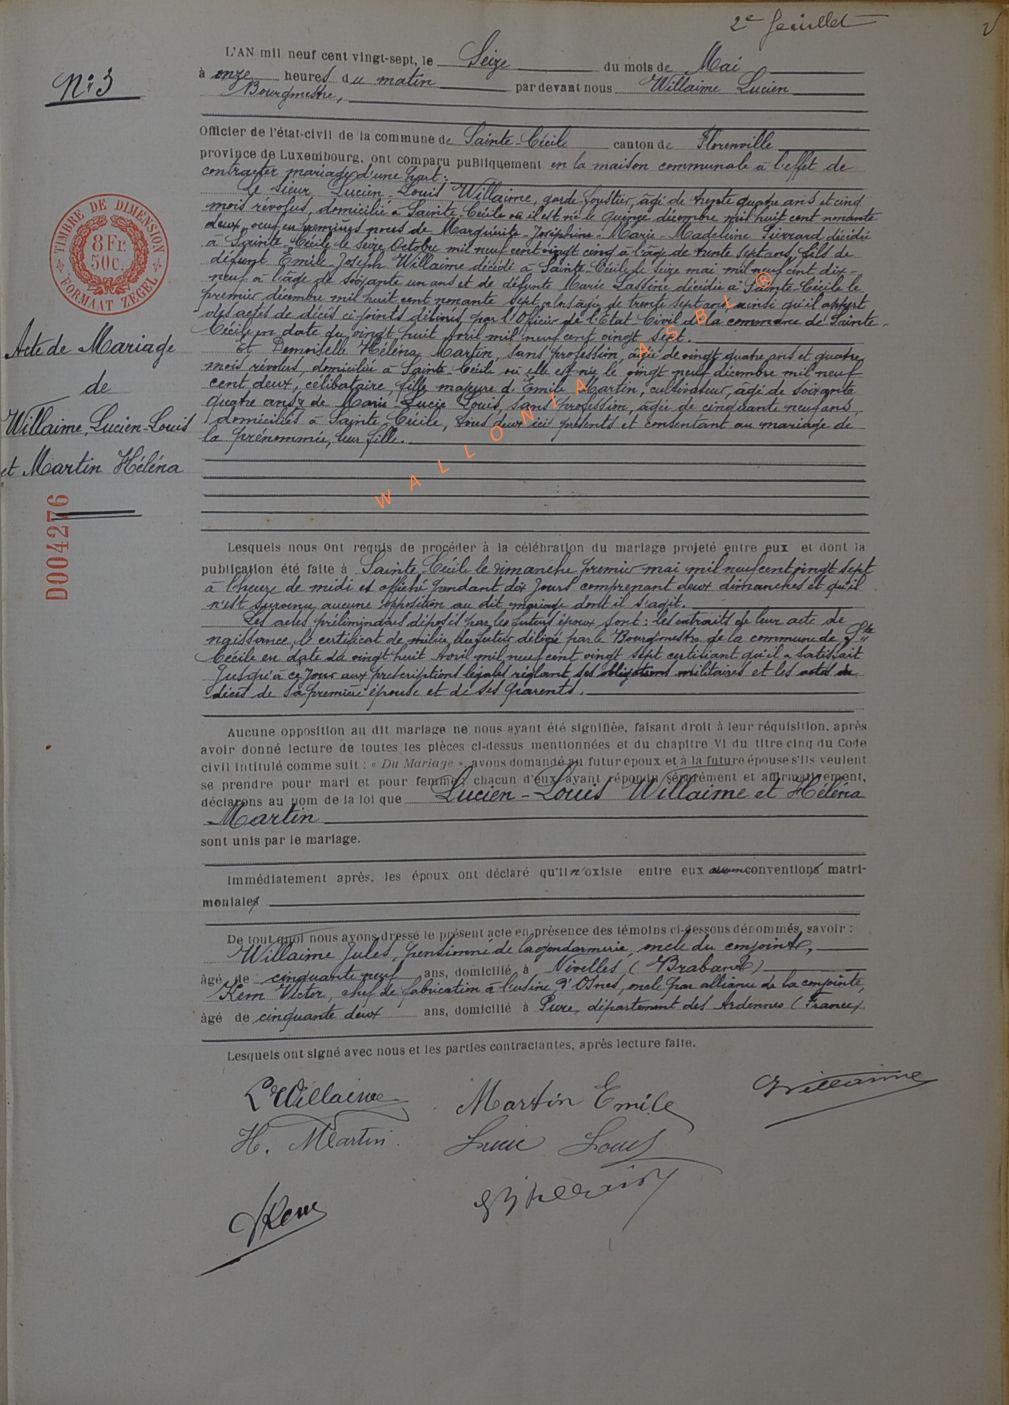 2e feuillet
N: 3
L'AN mil neuf cent vingt-sept, le Seize du mois de Mai
à onze heures du matin par devant nous Willaime Lucien
Bourgmestre,
Officier de l'état-civil de la commune de Sainte-Cécile canton de Florenville
province de Luxembourg, ont comparu publiquement en la maison communale à l'effet de
contracter mariage d'une part:
Le sieur, Lucien-Louis Willaime, garde forestier, âgé de trente quatre ans et cinq
mois révolus, domicilié à Sainte-Cécile où il est né le quinze décembre mil huit cent nonante
deux, veuf en premières noces de Marguerite-Joséphine-Marie-Madeleine Pierrard décédée
à Sainte Cécile le seize Octobre mil neuf cent vingt cinq à l'âge de trente sept ans, fils de
défunt Emile-Joseph Willaime décédé à Sainte Cécile le seize mai mil neuf cent dix-
neuf à l'âge de soixante un ans et de défunte Marie Lassine décédée à Sainte-Cécile le
premier décembre mil huit cent nonante sept à l'âge de trente sept ans ainsi qu'il appert
des actes de décès ci-joints délivrés par l'Officier de l'Etat-Civil de la commune de Sainte-
Cécile en date du vingt huit avril mil neuf cent vingt sept.
Et Demoiselle Héléna Martin, sans profession, âgée de vingt quatre ans et quatre
mois révolus, domiciliée à Sainte-Cécile où elle est née le vingt neuf décembre mil neuf
cent deux, célibataire, fille majeure d'Emile Martin, cultivateur, âgé de soixante
quatre ans, & de Marie-Lucie Louis, sans profession, âgée de cinquante neuf ans,
domiciliés à Sainte Cécile, tous deux ici présents et consentant au mariage de
la prénommée, leur fille.
TIMBRE DE DIMENSION
8 Fr.
50 c.
FORMAAT ZEGEL
Acte de Mariage
de
Willaime, Lucien-Louis
et Martin Héléna
D004276
WALLONIA ASBL ©
Lesquels nous ont requis de procéder à la célébration du mariage projeté entre eux et dont la
publication été faite à Sainte-Cécile le dimanche premier mai mil neuf cent vingt sept
à l'heure de midi et affiché pendant dix jours comprenant deux dimanches et qu'il
n'est survenu aucune opposition au dit mariage dont il s'agit.
Les actes préliminaires déposés par les futurs époux sont: les extraits de leur acte de
naissance, le certificat de milice du futur délivré par le Bourgmestre de la commune de Ste
Cécile en date du vingt huit Avril mil neuf cent vingt sept certifiant qu'il a satisfait
jusqu'à ce jour aux prescriptions légales réglant ses obligations militaires et les actes de
décès de sa première épouse et de ses parents.
Aucune opposition au dit mariage ne nous ayant été signifiée, faisant droit à leur réquisition, après
avoir donné lecture de toutes les pièces ci-dessus mentionnées et du chapitre VI du titre cinq du Code
civil intitulé comme suit : « Du Mariage », avons demandé au futur époux et à la future épouse s'ils veulent
se prendre pour mari et pour femme; chacun d'eux ayant répondu séparément et affirmativement,
déclarons au nom de la loi que Lucien-Louis Willaime et Héléna
Martin
sont unis par le mariage.
Immédiatement après, les époux ont déclaré qu'il n'existe entre eux aucun conventions matri-
moniales
De tout quoi nous avons dressé le présent acte en présence des témoins ci-dessous dénommés, savoir :
Willaime Jules, pensionné de la gendarmerie, oncle du conjoint,
âgé de cinquante neuf ans, domicilié à Nivelles, (Brabant)
Kem Victor, chef de fabrication à l'usine d'Osnes, oncle par alliance de la conjointe,
âgé de cinquante deux ans, domicilié à Pure, département des Ardennes (France).
Lesquels ont signé avec nous et les parties contractantes, après lecture faite.
L Willaime Martin Emile Willaime
H. Martin Lucie Louis
VKem